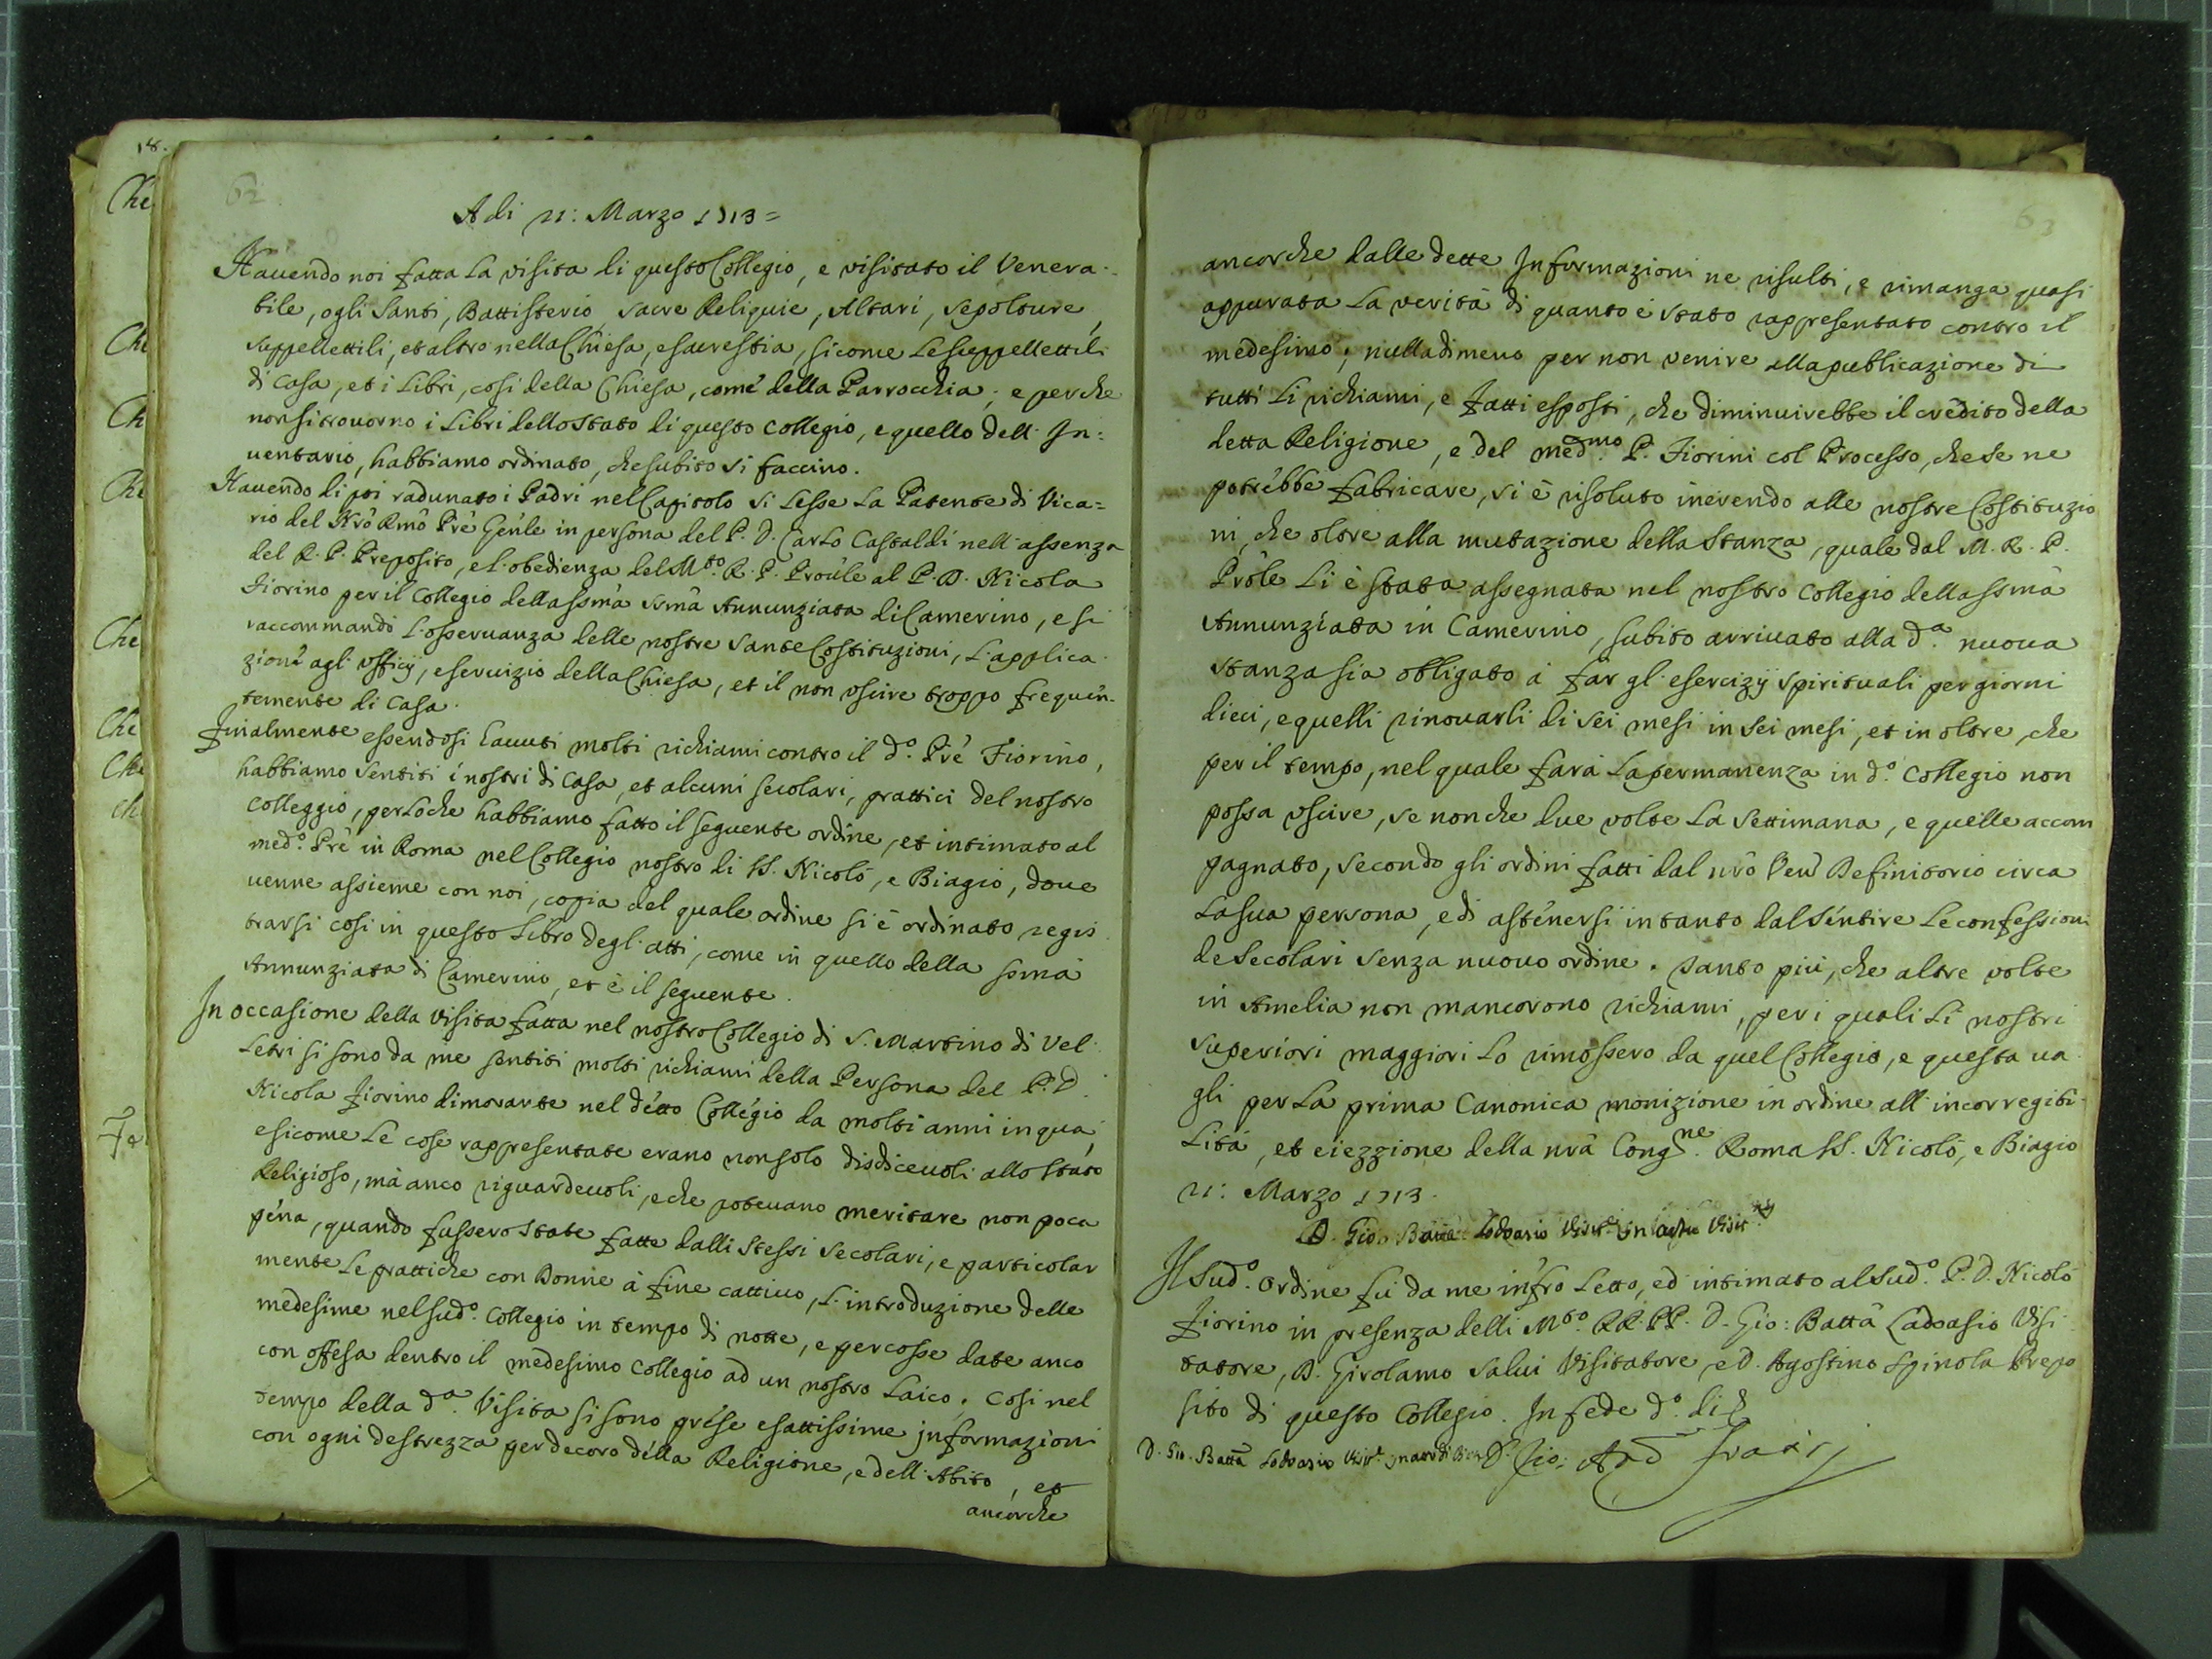 62
A di 21: Marzo 1713=
Hauendo noi fatta la visita di questo Collegio, e visitato il Venera-
bile, ogli Santi, Battisterio sacre Reliquie, Altari, sepolture,
suppellettili, et altro nella Chiesa, e sacrestia, sicome le suppellettili
di casa, et i libri, cosi della Chiesa, come della Parrocchia; e perche
non si trouorno i libri dello stato di questo collegio, e quello dell' In:
uentario, habbiamo ordinato, che subito si faccino.
Hauendo di poi radunato i Padri nel Capitolo si lesse la Patente di Vica=
rio del Nrõ Rmõ Prẽ Genle in persona del P. D. Carlo Castaldi nell' assenza
del R. P. Preposito, e l' obedienza del M.to R. P. Proule al P. D. Nicola
Fiorino per il collegio della ssma Annunziata di Camerino, e si
raccommandò l' osseruanza delle nostre sante Costituzioni, l' applica-
zione agl' officij, e seruizio della Chiesa, et il non uscire troppo frequen-
temente di casa.
Finalmente essendosi hauuti molti richiami contro il d.o Prẽ Fiorino,
habbiamo sentiti i nostri di casa, et alcuni secolari, prattici del nostro
colleggio, perloche habbiamo fatto il seguente ordine, et intimato al
med.o Prẽ in Roma nel Collegio nostro di SS. Nicolò, e Biagio, doue
uenne assieme con noi, copia del quale ordine si è ordinato regis
trarsi cosi in questo libro degl' atti, come in quello della ssmã
Annunziata di Camerino, et è il seguente.
In occasione della visita fatta nel nostro Collegio di S. Martino di Vel-
letri si sono da me sentiti molti richiami della Persona del P. D.
Nicola Fiorino dimorante nel detto Collegio da molti anni in qua,
e sicome le cose rappresentate erano non solo disdiceuoli allo stato
Religioso, mà anco riguardeuoli, e che poteuano meritare non poca
pena, quando fussero state fatte dalli stessi secolari, e particolar
mente le prattiche con Donne à fine cattiuo, l' introduzione delle
medesime nel sud.o collegio in tempo di notte, e percosse date anco
con offesa dentro il medesimo collegio ad un nostro laico; Cosi nel
tempo della d.a Visita si sono prese esattissime informazioni
con ogni destrezza per decoro della Religione, e dell' Abito, et
ancorche
63
ancorche dalle dette Informazioni ne risulti, e rimanga quasi
appurata la verità di quanto è stato rappresentato contro il
medesimo; nulladimeno per non venire alla publicazione di
tutti li richiami, e fatti esposti, che diminuirebbe il credito della
detta Religione, e del med.mo P. Fiorini col Processo, che se ne
potrebbe fabricare, si è risoluto inerendo alle nostre Costituzio
ni, che oltre alla mutazione della stanza, quale dal M. R. P.
Prõle li è stata assegnata nel nostro collegio della ssmã
Annunziata in Camerino, subito arriuato alla d.a nuoua
stanza sia obligato à far gl' esercizij spirituali per giorni
dieci, e quelli rinouarli di sei mesi in sei mesi, et in oltre, che
per il tempo, nel quale farà la permanenza in d.o collegio non
possa uscire, se non che due volte la settimana, e quelle accom
pagnato, secondo gli ordini fatti dal nrõ Ven Definitorio circa
la sua persona, e di astenersi in tanto dal sentire le confessioni
de secolari senza nuouo ordine. Tanto più, che altre volte
in Amelia non mancorono richiami, per i quali li nostri
superiori maggiori lo rimossero da quel Collegio, e questa ua
gli per la prima Canonica monizione in ordine all' incorregibi-
lità, et eiezzione della nrã Cong.ne Roma SS. Nicolò, e Biagio
21: Marzo 1713.
D. Gio: Batta Lodoasio Visit.r in actu Visit.nis
Il sud.o ordine fù da me infro letto, ed intimato al sud.o P. D. Nicolò
Fiorino in presenza delli M.to RR. PP. D. Gio: Batta Ladoasio Visi
tatore, D. Girolamo Salui Visitatore, e D. Agostino Spinola Prepo
sito di questo Collegio. In fede d.o dì
D. Gio. Batta Lodoasio Visit.r D. Gio: And